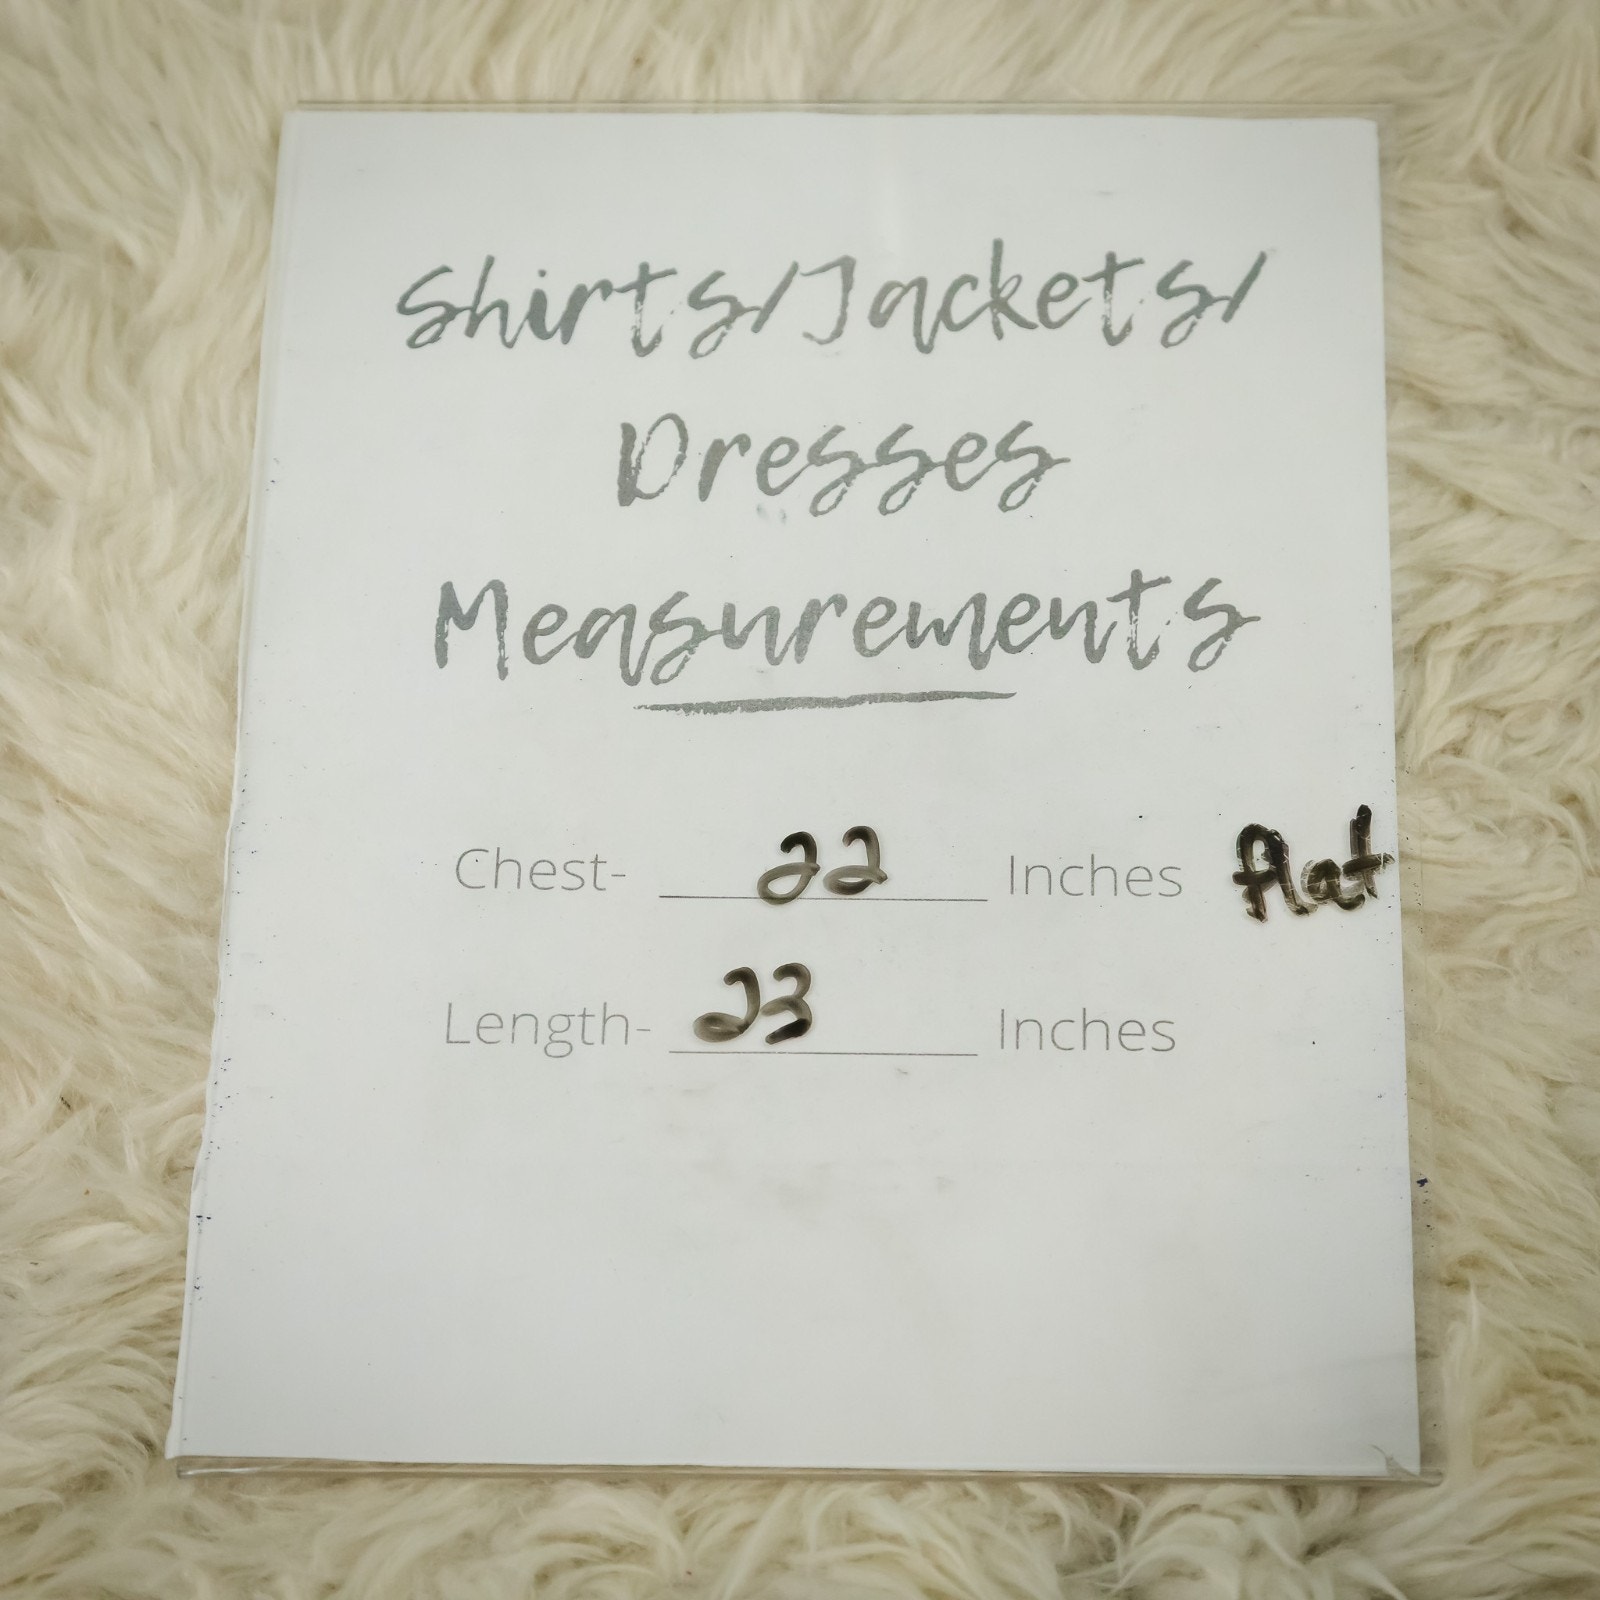 Shirts/Jackets/
Dresses
Measurements
Chest- 22 Inches flat
Length- 23 Inches